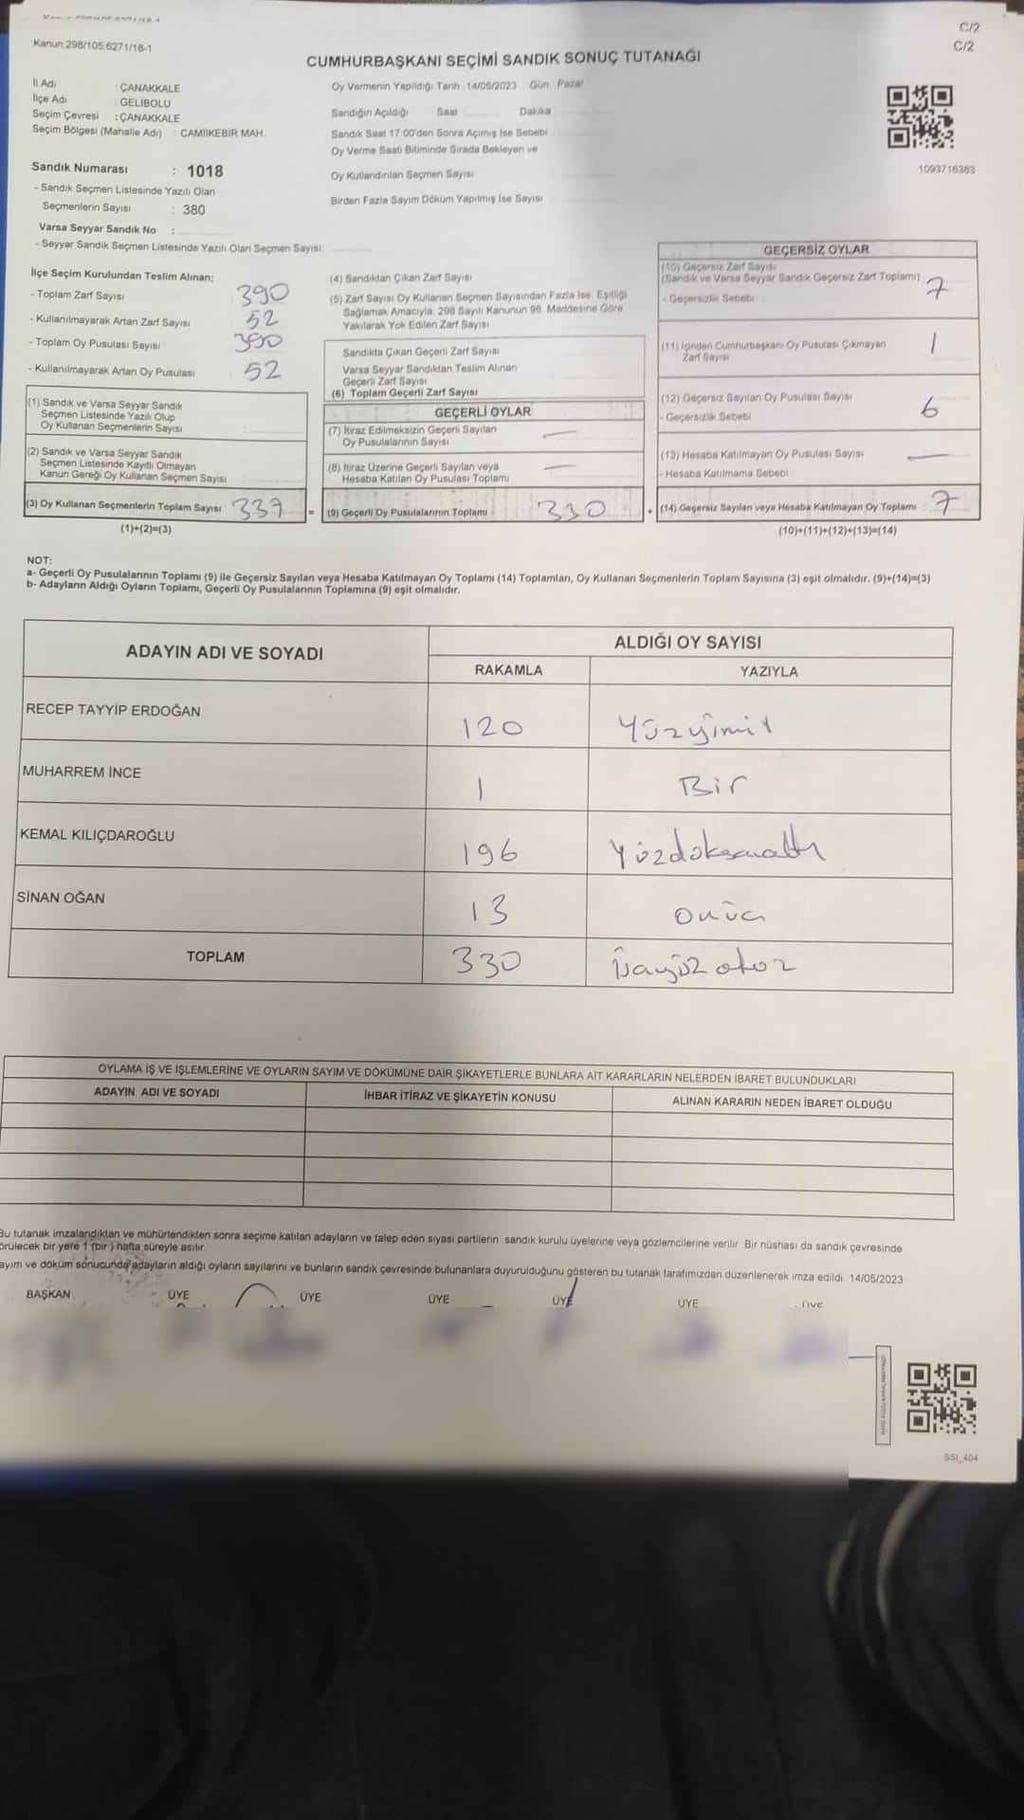 C/2
C/2
Kanun:298/105;6271/18-1
CUMHURBAŞKANI SEÇİMİ SANDIK SONUÇ TUTANAĞI
İl Adı : ÇANAKKALE
İlçe Adı : GELİBOLU
Seçim Çevresi : ÇANAKKALE
Seçim Bölgesi (Mahalle Adı) CAMİİKEBİR MAH.
Sandık Numarası : 1018
- Sandık Seçmen Listesinde Yazılı Olan
Seçmenlerin Sayısı : 380
Varsa Seyyar Sandık No :
- Seyyar Sandık Seçmen Listesinde Yazılı Olan Seçmen Sayısı:
Oy Vermenin Yapıldığı Tarih : 14/05/2023 Gün : Pazar
Sandığın Açıldığı Saat Dakika
Sandık Saat 17:00'den Sonra Açımış İse Sebebi
Oy Verme Saati Bitiminde Sırada Bekleyen ve
Oy Kullandırılan Seçmen Sayısı
Birden Fazla Sayım Döküm Yapılmış İse Sayısı
1093716363
İlçe Seçim Kurulundan Teslim Alınan;
- Toplam Zarf Sayısı 390
- Kullanılmayarak Artan Zarf Sayısı 52
- Toplam Oy Pusulası Sayısı 390
- Kullanılmayarak Artan Oy Pusulası 52
(1) Sandık ve Varsa Seyyar Sandık
Seçmen Listesinde Yazılı Olup
Oy Kullanan Seçmenlerin Sayısı
(2) Sandık ve Varsa Seyyar Sandık
Seçmen Listesinde Kayıtlı Olmayan
Kanun Gereği Oy Kullanan Seçmen Sayısı
(3) Oy Kullanan Seçmenlerin Toplam Sayısı 337 =
(1)+(2)=(3)
(4) Sandıktan Çıkan Zarf Sayısı
(5) Zarf Sayısı Oy Kullanan Seçmen Sayısından Fazla İse, Eşitliği
Sağlamak Amacıyla, 298 Sayılı Kanunun 98. Maddesine Göre
Yakılarak Yok Edilen Zarf Sayısı
Sandıkta Çıkan Geçerli Zarf Sayısı
Varsa Seyyar Sandıktan Teslim Alınan
Geçerli Zarf Sayısı
(6) Toplam Geçerli Zarf Sayısı
GEÇERLİ OYLAR
(7) İtiraz Edilmeksizin Geçerli Sayılan
Oy Pusulalarının Sayısı —
(8) İtiraz Üzerine Geçerli Sayılan veya
Hesaba Katılan Oy Pusulası Toplamı —
(9) Geçerli Oy Pusulalarının Toplamı 330 +
GEÇERSİZ OYLAR
(10) Geçersiz Zarf Sayısı
(Sandık ve Varsa Seyyar Sandık Geçersiz Zarf Toplamı) 7
- Geçersizlik Sebebi
(11) İçinden Cumhurbaşkanı Oy Pusulası Çıkmayan
Zarf Sayısı 1
(12) Geçersiz Sayılan Oy Pusulası Sayısı 6
- Geçersizlik Sebebi
(13) Hesaba Katılmayan Oy Pusulası Sayısı —
- Hesaba Katılmama Sebebi
(14) Geçersiz Sayılan veya Hesaba Katılmayan Oy Toplamı 7
(10)+(11)+(12)+(13)=(14)
NOT:
a- Geçerli Oy Pusulalarının Toplamı (9) ile Geçersiz Sayılan veya Hesaba Katılmayan Oy Toplamı (14) Toplamları, Oy Kullanan Seçmenlerin Toplam Sayısına (3) eşit olmalıdır. (9)+(14)=(3)
b- Adayların Aldığı Oyların Toplamı, Geçerli Oy Pusulalarının Toplamına (9) eşit olmalıdır.
ADAYIN ADI VE SOYADI ALDIĞI OY SAYISI
RAKAMLA YAZIYLA
RECEP TAYYİP ERDOĞAN 120 Yüzyimi
MUHARREM İNCE 1 Bir
KEMAL KILIÇDAROĞLU 196 Yüzdoksanaltı
SİNAN OĞAN 13 onüç
TOPLAM 330 üçyüz otuz
OYLAMA İŞ VE İŞLEMLERİNE VE OYLARIN SAYIM VE DÖKÜMÜNE DAİR ŞİKAYETLERLE BUNLARA AİT KARARLARIN NELERDEN İBARET BULUNDUKLARI
ADAYIN ADI VE SOYADI İHBAR İTİRAZ VE ŞİKAYETİN KONUSU ALINAN KARARIN NEDEN İBARET OLDUĞU
Bu tutanak imzalandıktan ve mühürlendikten sonra seçime katılan adayların ve talep eden siyasi partilerin sandık kurulu üyelerine veya gözlemcilerine verilir. Bir nüshası da sandık çevresinde
örülecek bir yere 1 (bir) hafta süreyle asılır.
ayım ve döküm sonucunda adayların aldığı oyların sayılarını ve bunların sandık çevresinde bulunanlara duyurulduğunu gösteren bu tutanak tarafımızdan düzenlenerek imza edildi. 14/05/2023
BAŞKAN ÜYE ÜYE ÜYE ÜYE ÜYE ÜYE
SSI_404